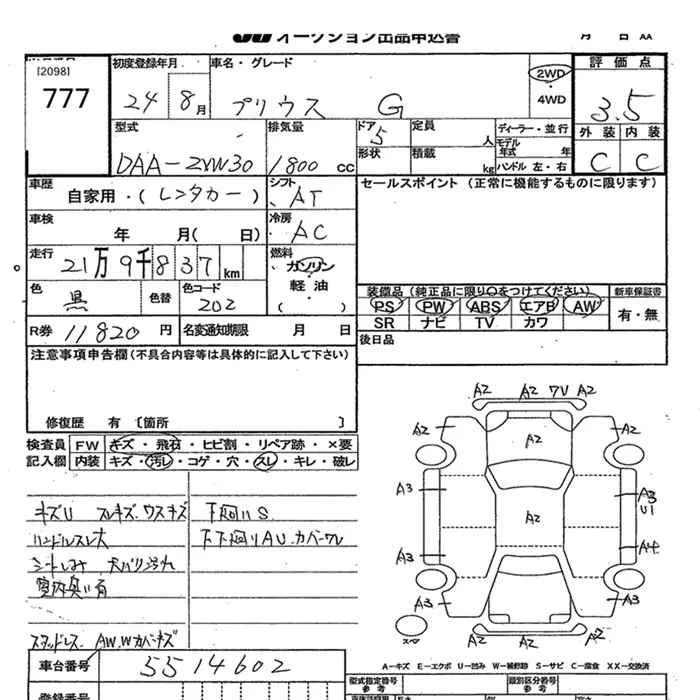 JU オークション出品申込書 月 日
[2098]
777
初度登録年月
24 8月
車名・グレード
プリウス G
2WD
4WD
評価点
3.5
外装 内装
C C
型式
DAA-ZVW30
排気量
1800 CC
ドア
5
形状
定員
人
積載
kg
ディーラー・並行
モデル年式 年
ハンドル 左・右
車歴
自家用・(レンタカー)
シフト
AT
セールスポイント (正常に機能するものに限ります)
車検
年 月( 日)
冷房
AC
走行
21万9千837km
燃料
ガソリン
・
軽油
( )
色
黒
色替
色コード
202
装備品 (純正品に限り○をつけてください)
PS PW ABS エアB AW
SR ナビ TV カワ
新車保証書
有・無
R券 11820円
名変通知期限 月 日
後日品
注意事項申告欄(不具合内容等は具体的に記入して下さい)
修復歴 有 [箇所 ]
検査員記入欄
FW キズ・飛石・ヒビ割・リペア跡・×要
内装 キズ・汚レ・コゲ・穴・スレ・キレ・破レ
キズU スレキズ.ウスキズ
ハンドルスレ大
シートしみ
室内臭い有
スタッドレス AW.Wカバーキズ
下廻りS
下下廻りAU.カバーワレ
A2 A2 7V A2
A2 A2 A2
A3 A2 A3 U1
A3 A4
A3 A3
A2 A2
スペア
A-キズ E-エクボ U-凹み W-補修跡 S-サビ C-腐食 XX-交換済
車台番号 5514602
登録番号
型式指定番号
参考
類別区分番号
参考